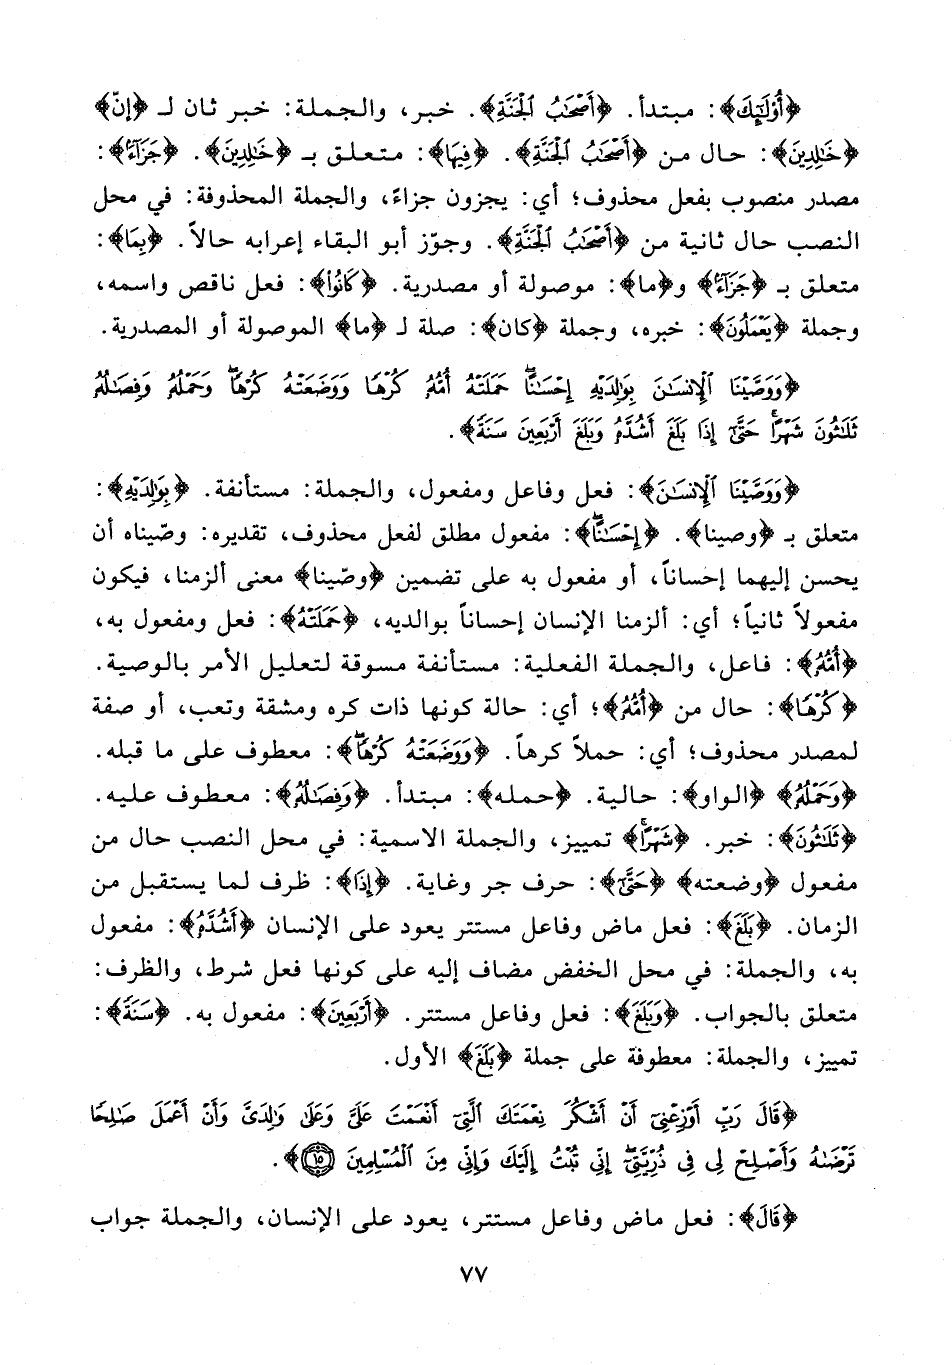 ﴿أُوْلَٰٓئِكَ﴾: مبتدأ. ﴿أَصْحَٰبُ ٱلْجَنَّةِ﴾. خبر، والجملة: خبر ثان لـ ﴿إنّ﴾
﴿خَٰلِدِينَ﴾: حال من ﴿أَصْحَٰبُ ٱلْجَنَّةِ﴾. ﴿فِيهَا﴾: متعلق بـ ﴿خَٰلِدِينَ﴾. ﴿جَزَآءًۢ﴾:
مصدر منصوب بفعل محذوف؛ أي: يجزون جزاءً، والجملة المحذوفة: في محل
النصب حال ثانية من ﴿أَصْحَٰبُ ٱلْجَنَّةِ﴾. وجوّز أبو البقاء إعرابه حالاً. ﴿بِمَا﴾:
متعلق بـ ﴿جَزَآءًۢ﴾ و﴿ما﴾: موصولة أو مصدرية. ﴿كَانُواْ﴾: فعل ناقص واسمه،
وجملة ﴿يَعْمَلُونَ﴾: خبره، وجملة ﴿كان﴾: صلة لـ ﴿ما﴾ الموصولة أو المصدرية.
﴿وَوَصَّيْنَا ٱلْإِنسَٰنَ بِوَٰلِدَيْهِ إِحْسَٰنًاۖ حَمَلَتْهُ أُمُّهُۥ كُرْهًا وَوَضَعَتْهُ كُرْهًاۖ وَحَمْلُهُۥ وَفِصَٰلُهُۥ
ثَلَٰثُونَ شَهْرًاۚ حَتَّىٰٓ إِذَا بَلَغَ أَشُدَّهُۥ وَبَلَغَ أَرْبَعِينَ سَنَةً﴾.
﴿وَوَصَّيْنَا ٱلْإِنسَٰنَ﴾: فعل وفاعل ومفعول، والجملة: مستأنفة. ﴿بِوَٰلِدَيْهِ﴾:
متعلق بـ ﴿وصينا﴾. ﴿إِحْسَٰنًاۖ﴾: مفعول مطلق لفعل محذوف، تقديره: وصّيناه أن
يحسن إليهما إحساناً، أو مفعول به على تضمين ﴿وصّينا﴾ معنى ألزمنا، فيكون
مفعولاً ثانياً؛ أي: ألزمنا الإنسان إحساناً بوالديه، ﴿حَمَلَتْهُ﴾: فعل ومفعول به،
﴿أُمُّهُۥ﴾: فاعل، والجملة الفعلية: مستأنفة مسوقة لتعليل الأمر بالوصية.
﴿كُرْهًا﴾: حال من ﴿أُمُّهُۥ﴾؛ أي: حالة كونها ذات كره ومشقة وتعب، أو صفة
لمصدر محذوف؛ أي: حملاً كرهاً. ﴿وَوَضَعَتْهُ كُرْهًاۖ﴾: معطوف على ما قبله.
﴿وَحَمْلُهُۥ﴾ ﴿الواو﴾: حالية. ﴿حمله﴾: مبتدأ. ﴿وَفِصَٰلُهُۥ﴾: معطوف عليه.
﴿ثَلَٰثُونَ﴾: خبر. ﴿شَهْرًاۚ﴾ تمييز، والجملة الاسمية: في محل النصب حال من
مفعول ﴿وضعته﴾ ﴿حَتَّىٰٓ﴾: حرف جر وغاية. ﴿إِذَا﴾: ظرف لما يستقبل من
الزمان. ﴿بَلَغَ﴾: فعل ماض وفاعل مستتر يعود على الإنسان ﴿أَشُدَّهُۥ﴾: مفعول
به، والجملة: في محل الخفض مضاف إليه على كونها فعل شرط، والظرف:
متعلق بالجواب. ﴿وَبَلَغَ﴾: فعل وفاعل مستتر. ﴿أَرْبَعِينَ﴾: مفعول به. ﴿سَنَةً﴾:
تمييز، والجملة: معطوفة على جملة ﴿بَلَغَ﴾ الأول.
﴿قَالَ رَبِّ أَوْزِعْنِىٓ أَنْ أَشْكُرَ نِعْمَتَكَ ٱلَّتِىٓ أَنْعَمْتَ عَلَىَّ وَعَلَىٰ وَٰلِدَىَّ وَأَنْ أَعْمَلَ صَٰلِحًا
تَرْضَىٰهُ وَأَصْلِحْ لِى فِى ذُرِّيَّتِىٓۖ إِنِّى تُبْتُ إِلَيْكَ وَإِنِّى مِنَ ٱلْمُسْلِمِينَ ١٥﴾.
﴿قَالَ﴾: فعل ماض وفاعل مستتر، يعود على الإنسان، والجملة جواب
٧٧